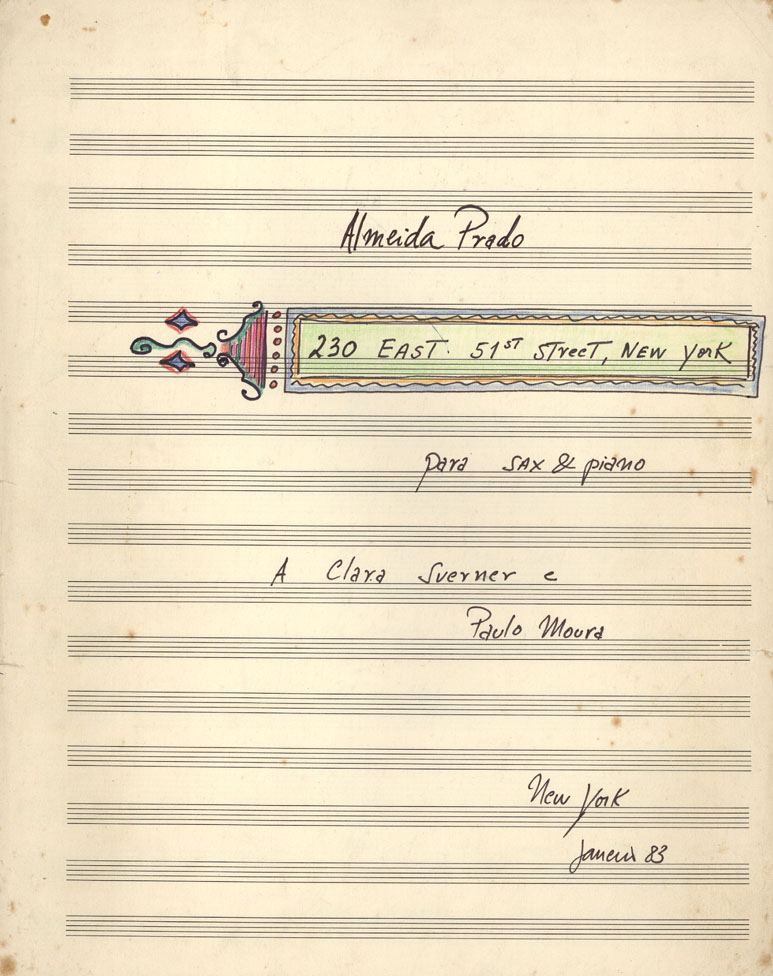 Almeida Prado
230 EAST. 51ST STreeT, NEW York
para SAX & piano
A Clara Sverner e
Paulo Moura
New York
Janeiro 83